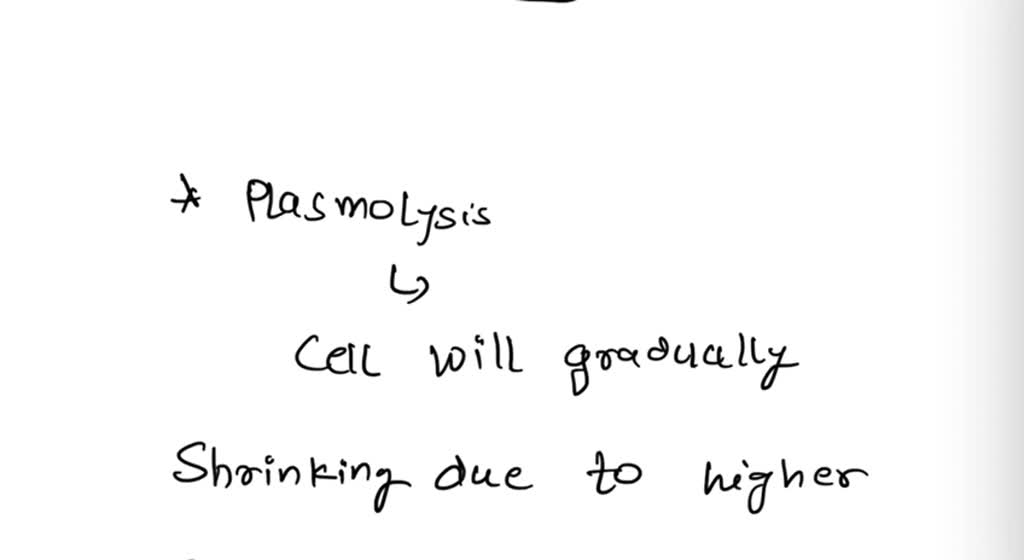 * Plasmolysis
↳
Cell will gradually
Shrinking due to higher